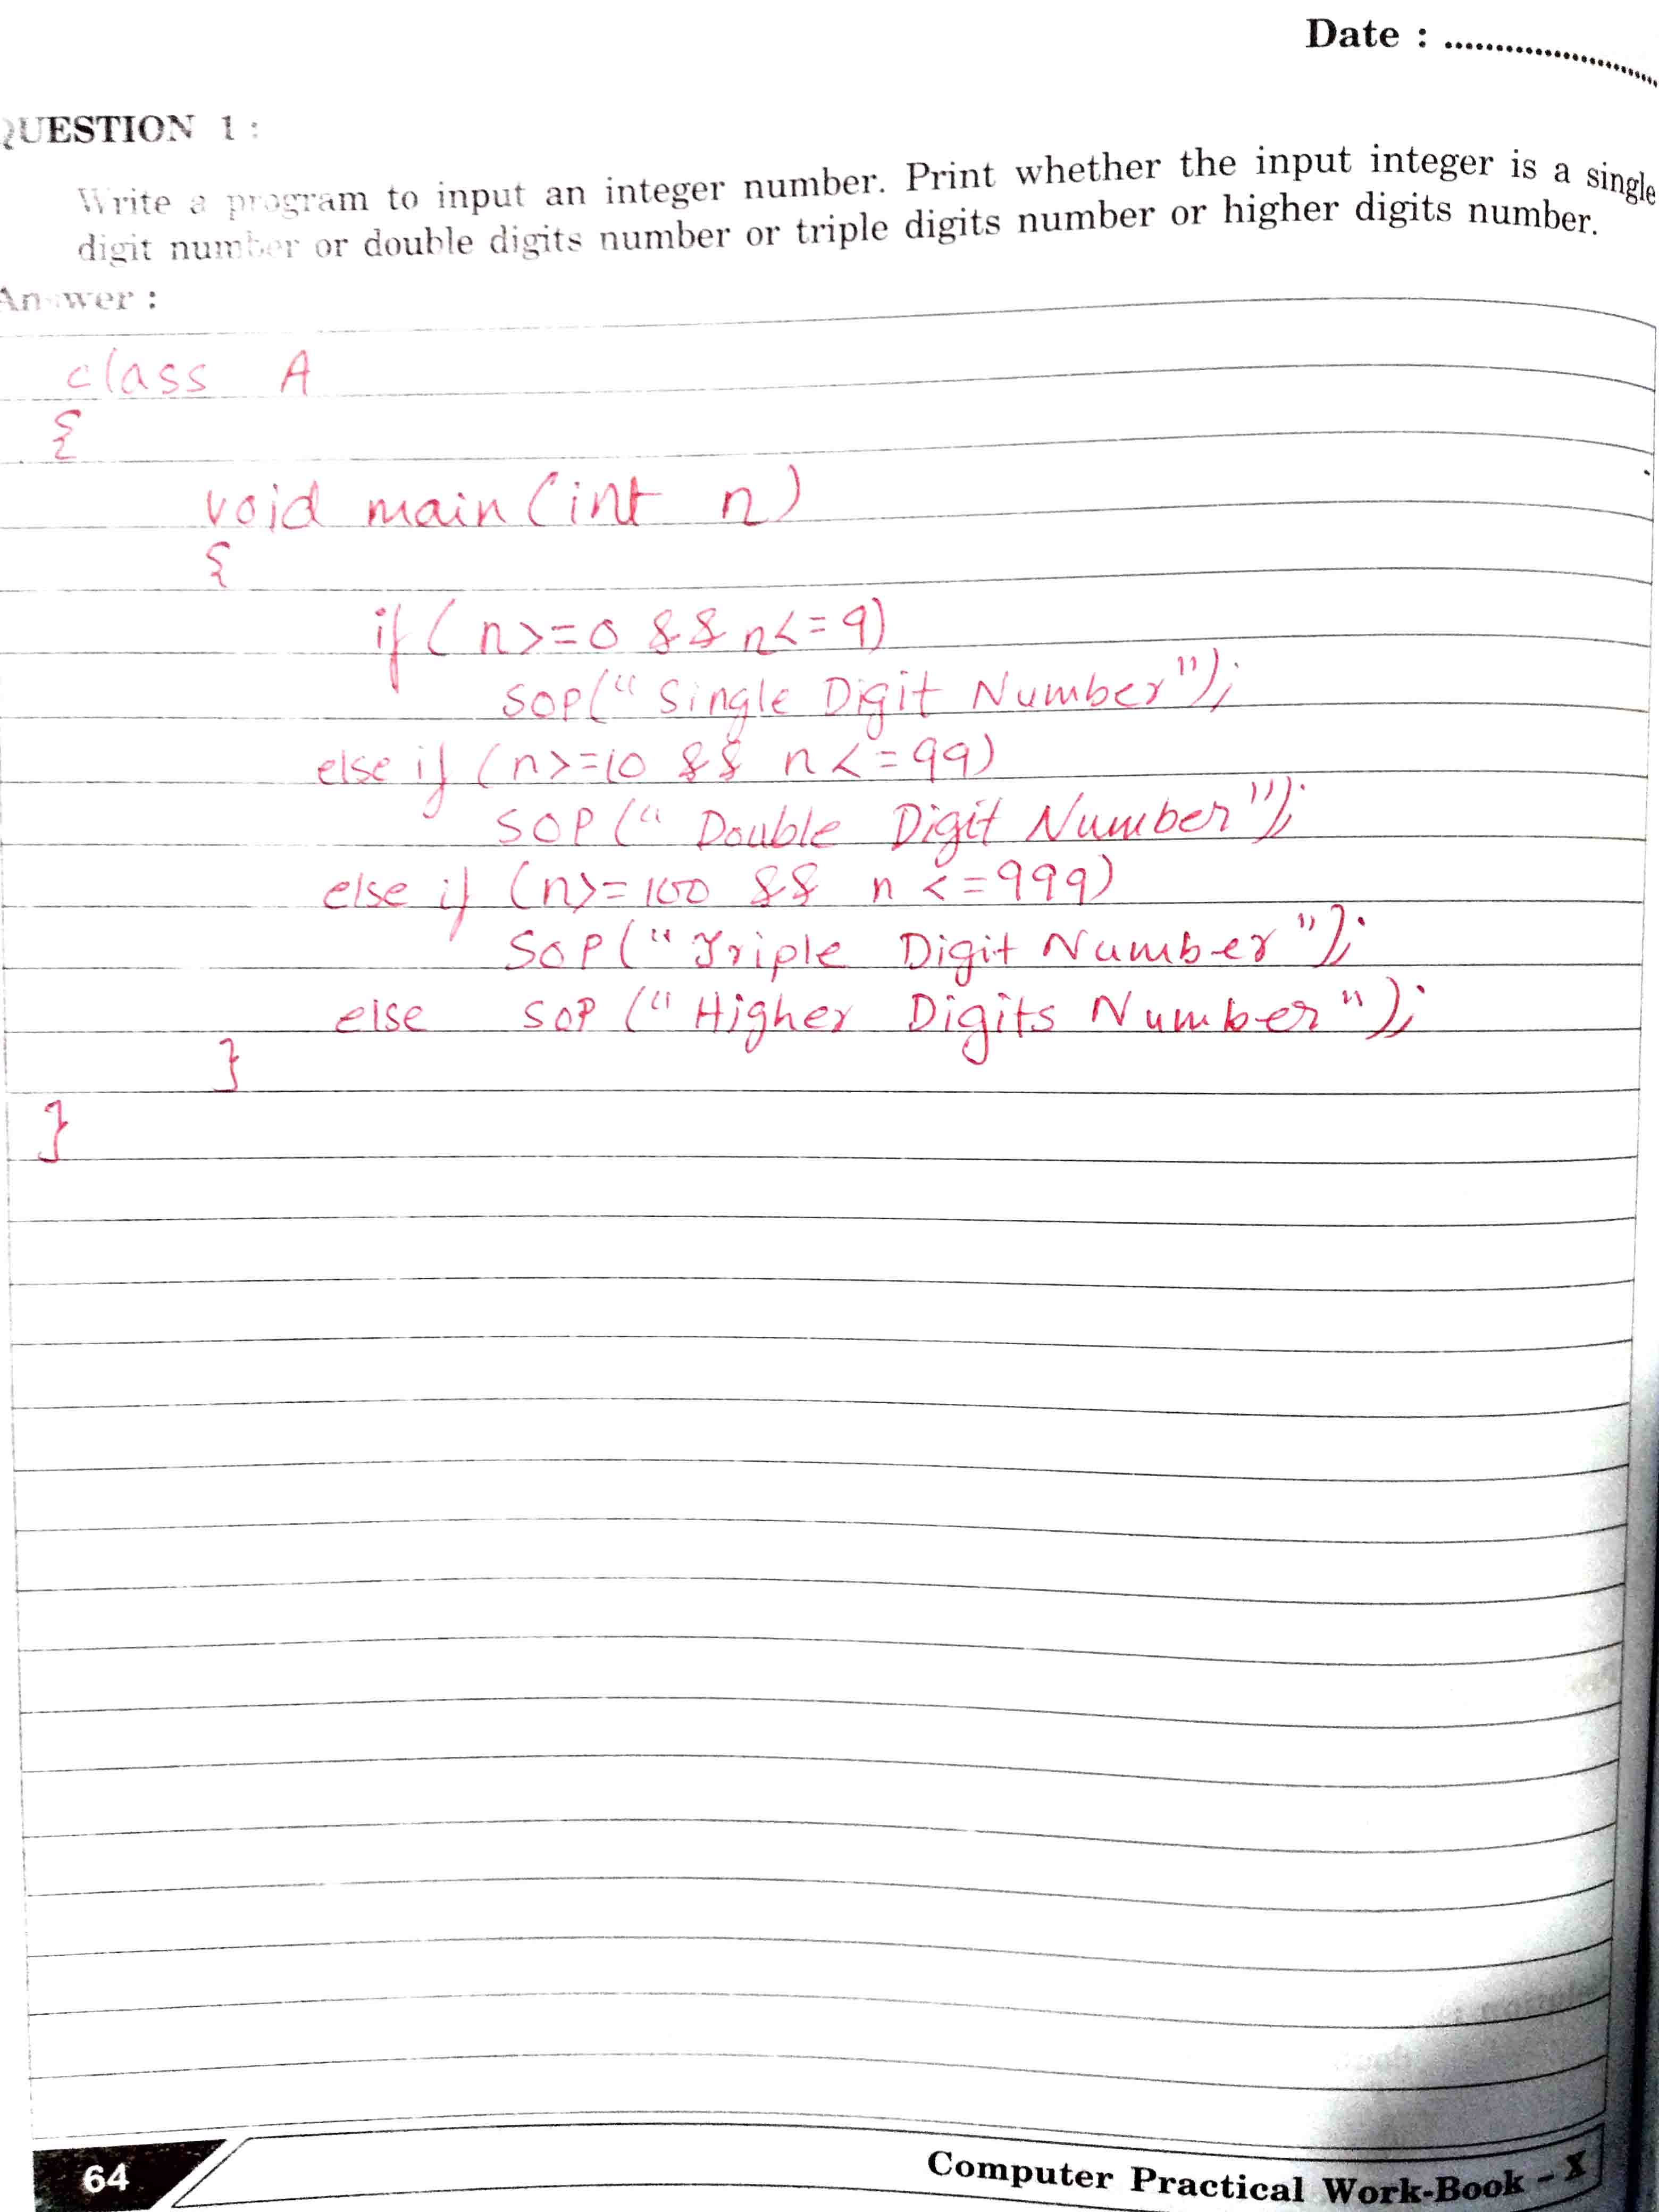 Date : ..............................
QUESTION 1 :
Write a program to input an integer number. Print whether the input integer is a single
digit number or double digits number or triple digits number or higher digits number.
Answer :
class A
{
void main (int n)
{
if ( n>=0 && n<=9)
SOP(" Single Digit Number");
else if (n>=10 && n<=99)
SOP (" Double Digit Number");
else if (n>=100 && n <=999)
SOP(" Triple Digit Number");
else SOP (" Higher Digits Number");
}
}
64
Computer Practical Work-Book - X